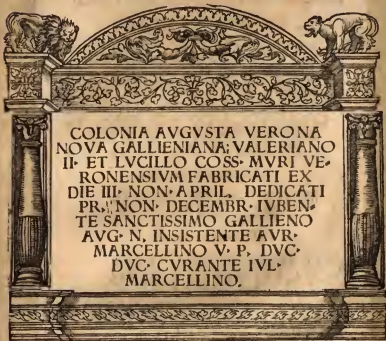 COLONIA AVGVSTA VERONA
NOVA GALLIENIANA; VALERIANO
II· ET LVCILLO COSS· MVRI VE-
RONENSIVM FABRICATI EX
DIE III· NON· APRIL, DEDICATI
PR, NON· DECEMBR· IVBEN-
TE SANCTISSIMO GALLIENO
AVG· N, INSISTENTE AVR·
MARCELLINO V· P, DVC·
DVC· CVRANTE IVL·
MARCELLINO.